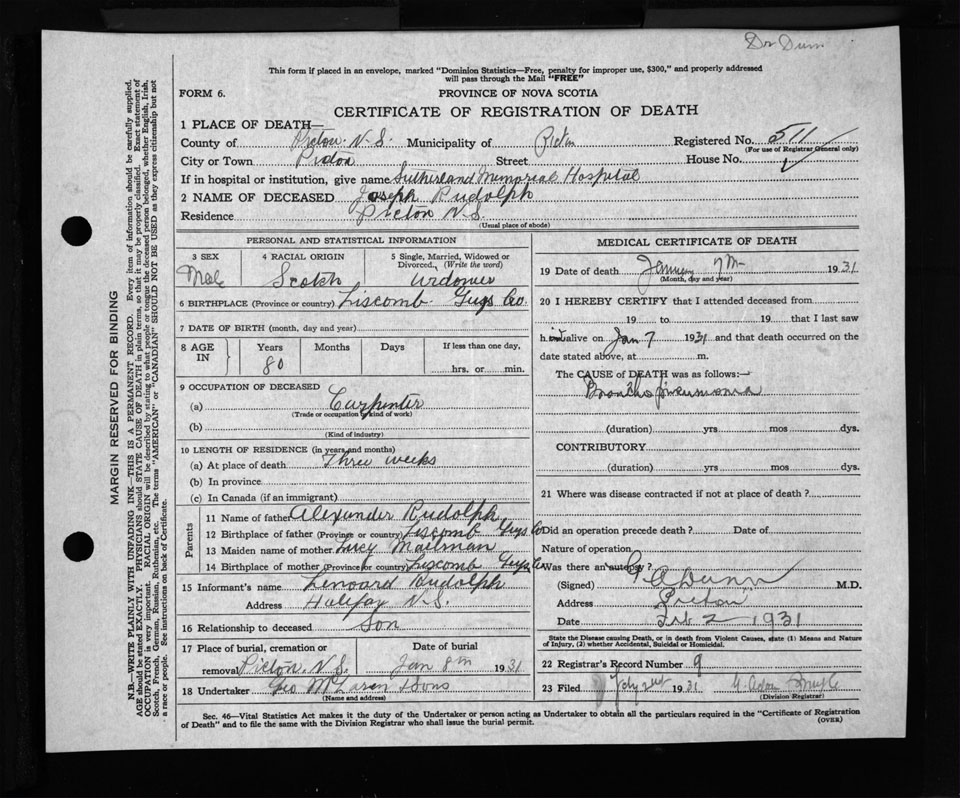 Dr Dunn
This form if placed in an envelope, marked "Dominion Statistics—Free, penalty for improper use, $300," and properly addressed
will pass through the Mail "FREE"
FORM 6.
PROVINCE OF NOVA SCOTIA
CERTIFICATE OF REGISTRATION OF DEATH
1 PLACE OF DEATH—
County of Pictou N.S. Municipality of Pictou Registered No. 511
(For use of Registrar General only)
City or Town Pictou Street House No.
If in hospital or institution, give name Sutherland Memorial Hospital
2 NAME OF DECEASED Joseph Rudolph
Residence Pictou N.S.
(Usual place of abode)
PERSONAL AND STATISTICAL INFORMATION
3 SEX 4 RACIAL ORIGIN 5 Single, Married, Widowed or
Divorced, (Write the word)
Male Scotch Widower
6 BIRTHPLACE (Province or country) Liscomb Guys Co.
7 DATE OF BIRTH (month, day and year)
8 AGE IN Years Months Days If less than one day,
80 hrs. or min.
9 OCCUPATION OF DECEASED
(a) Carpenter
(Trade or occupation & kind of work)
(b)
(Kind of industry)
10 LENGTH OF RESIDENCE (in years and months)
(a) At place of death Three weeks
(b) In province
(c) In Canada (if an immigrant)
Parents
11 Name of father Alexander Rudolph
12 Birthplace of father (Province or country) Liscomb Guys Co
13 Maiden name of mother Lucy Mailman
14 Birthplace of mother (Province or country) Liscomb Guys Co.
15 Informant's name Lenoard Rudolph
Address Halifax N.S.
16 Relationship to deceased Son
17 Place of burial, cremation or Date of burial
removal Pictou, N.S. Jan 8th 1931
18 Undertaker Geo & Sons
(Name and address)
MEDICAL CERTIFICATE OF DEATH
19 Date of death January 7th 1931
(Month, day and year)
20 I HEREBY CERTIFY that I attended deceased from
19 to 19 that I last saw
h im alive on Jan 7 1931 and that death occurred on the
date stated above, at m.
The CAUSE of DEATH was as follows:—
Broncho pneumonia
(duration) yrs mos dys.
CONTRIBUTORY
(duration) yrs mos dys.
21 Where was disease contracted if not at place of death?
Did an operation precede death? Date of
Nature of operation
Was there an autopsy?
(Signed) Dunn M.D.
Address Pictou
Date Feb 2 1931
State the Disease causing Death, or in death from Violent Causes, state (1) Means and Nature
of Injury, (2) whether Accidental, Suicidal or Homicidal.
22 Registrar's Record Number 9
23 Filed Feby 2nd 1931
(Division Registrar)
Sec. 46—Vital Statistics Act makes it the duty of the Undertaker or person acting as Undertaker to obtain all the particulars required in the "Certificate of Registration
of Death" and to file the same with the Division Registrar who shall issue the burial permit.
(OVER)
MARGIN RESERVED FOR BINDING
N.B.—WRITE PLAINLY WITH UNFADING INK—THIS IS A PERMANENT RECORD. Every item of information should be carefully supplied.
AGE should be stated EXACTLY. PHYSICIANS should STATE CAUSE OF DEATH in plain terms, so that it may be properly classified. Exact statement of
OCCUPATION is very important. RACIAL ORIGIN will be described by stating to what people or tongue the deceased person belonged, whether English, Irish,
Scotch, French, German, Russian, Ruthenian, etc. The terms "AMERICAN" or "CANADIAN" SHOULD NOT BE USED as they express citizenship but not
a race or people. See instructions on back of Certificate.